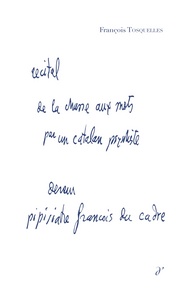 François TOSQUELLES
recital
de la chasse aux mots
par un catalan psychiste
devenu
pipisiatre francais du cadre